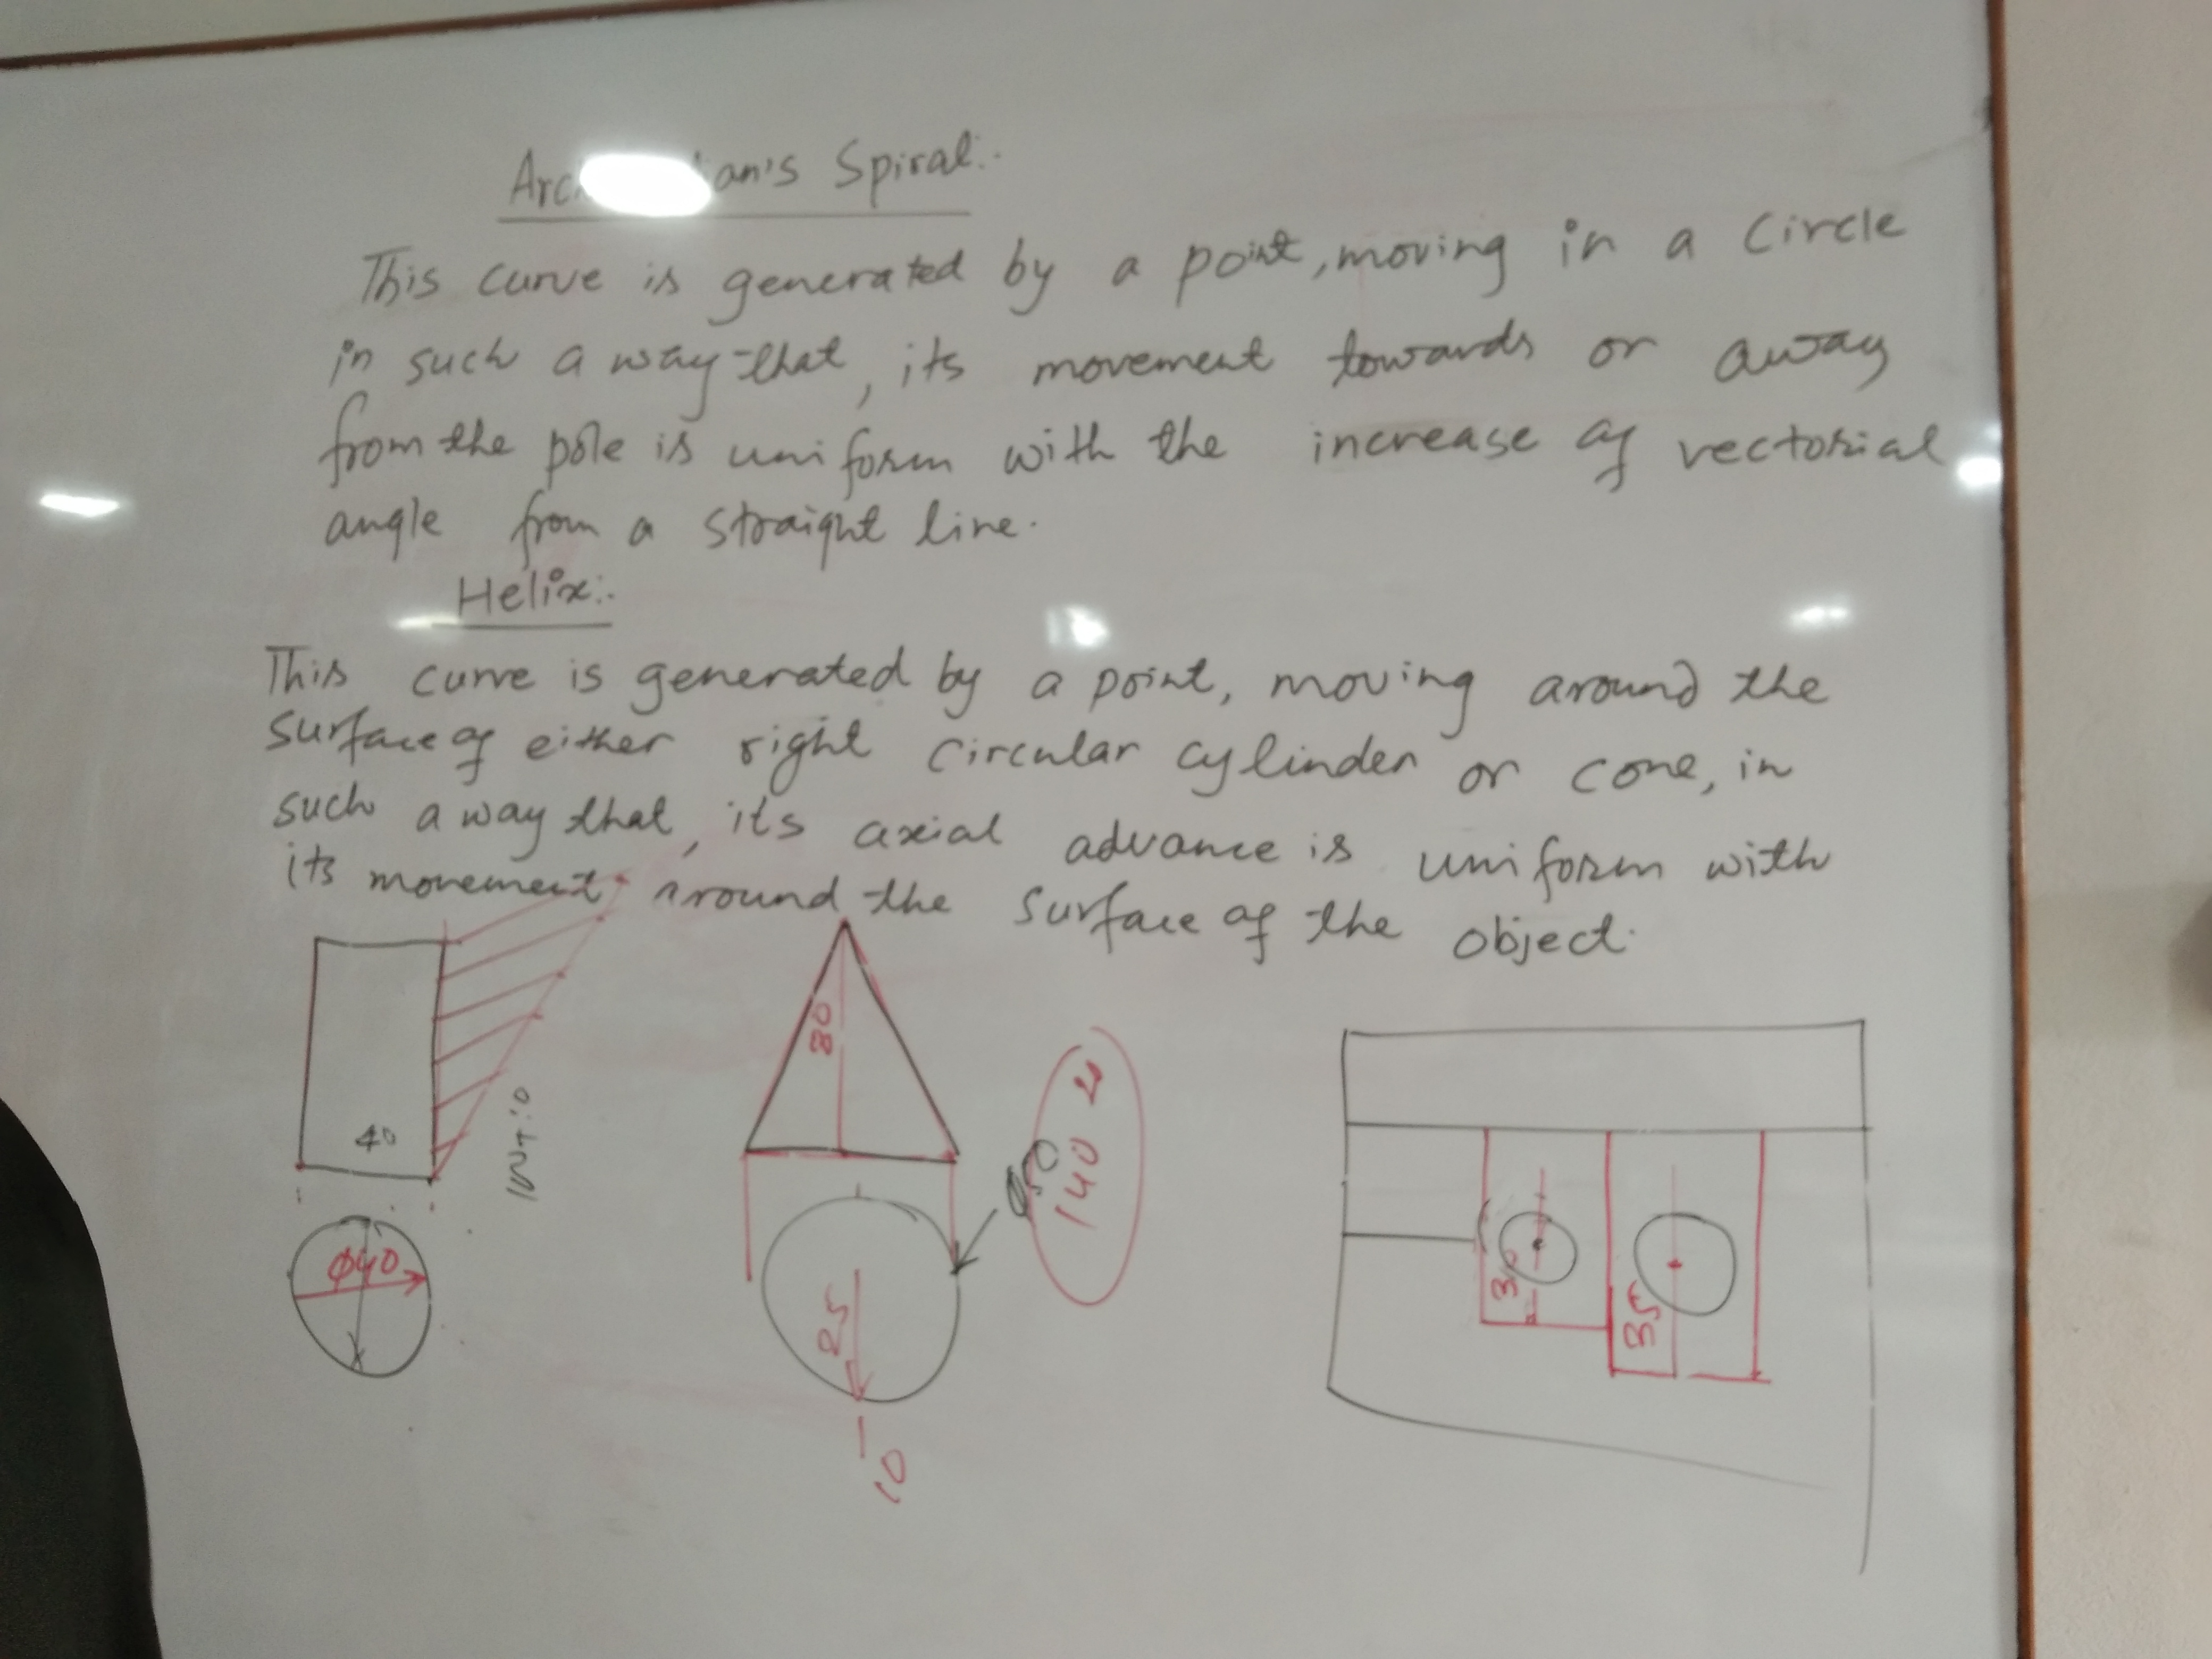 an's Spiral:-
This curve is generated by a point, moving in a circle
in such a way that, its movement towards or away
from the pole is uniform with the increase of vectorial
angle from a straight line.
Helix:-
This curve is generated by a point, moving around the
surface of either right circular cylinder or cone, in
such a way that, its axial advance is uniform with
its movement around the surface of the object.
80
40
140
Φ50
Φ40
30
35
25
10